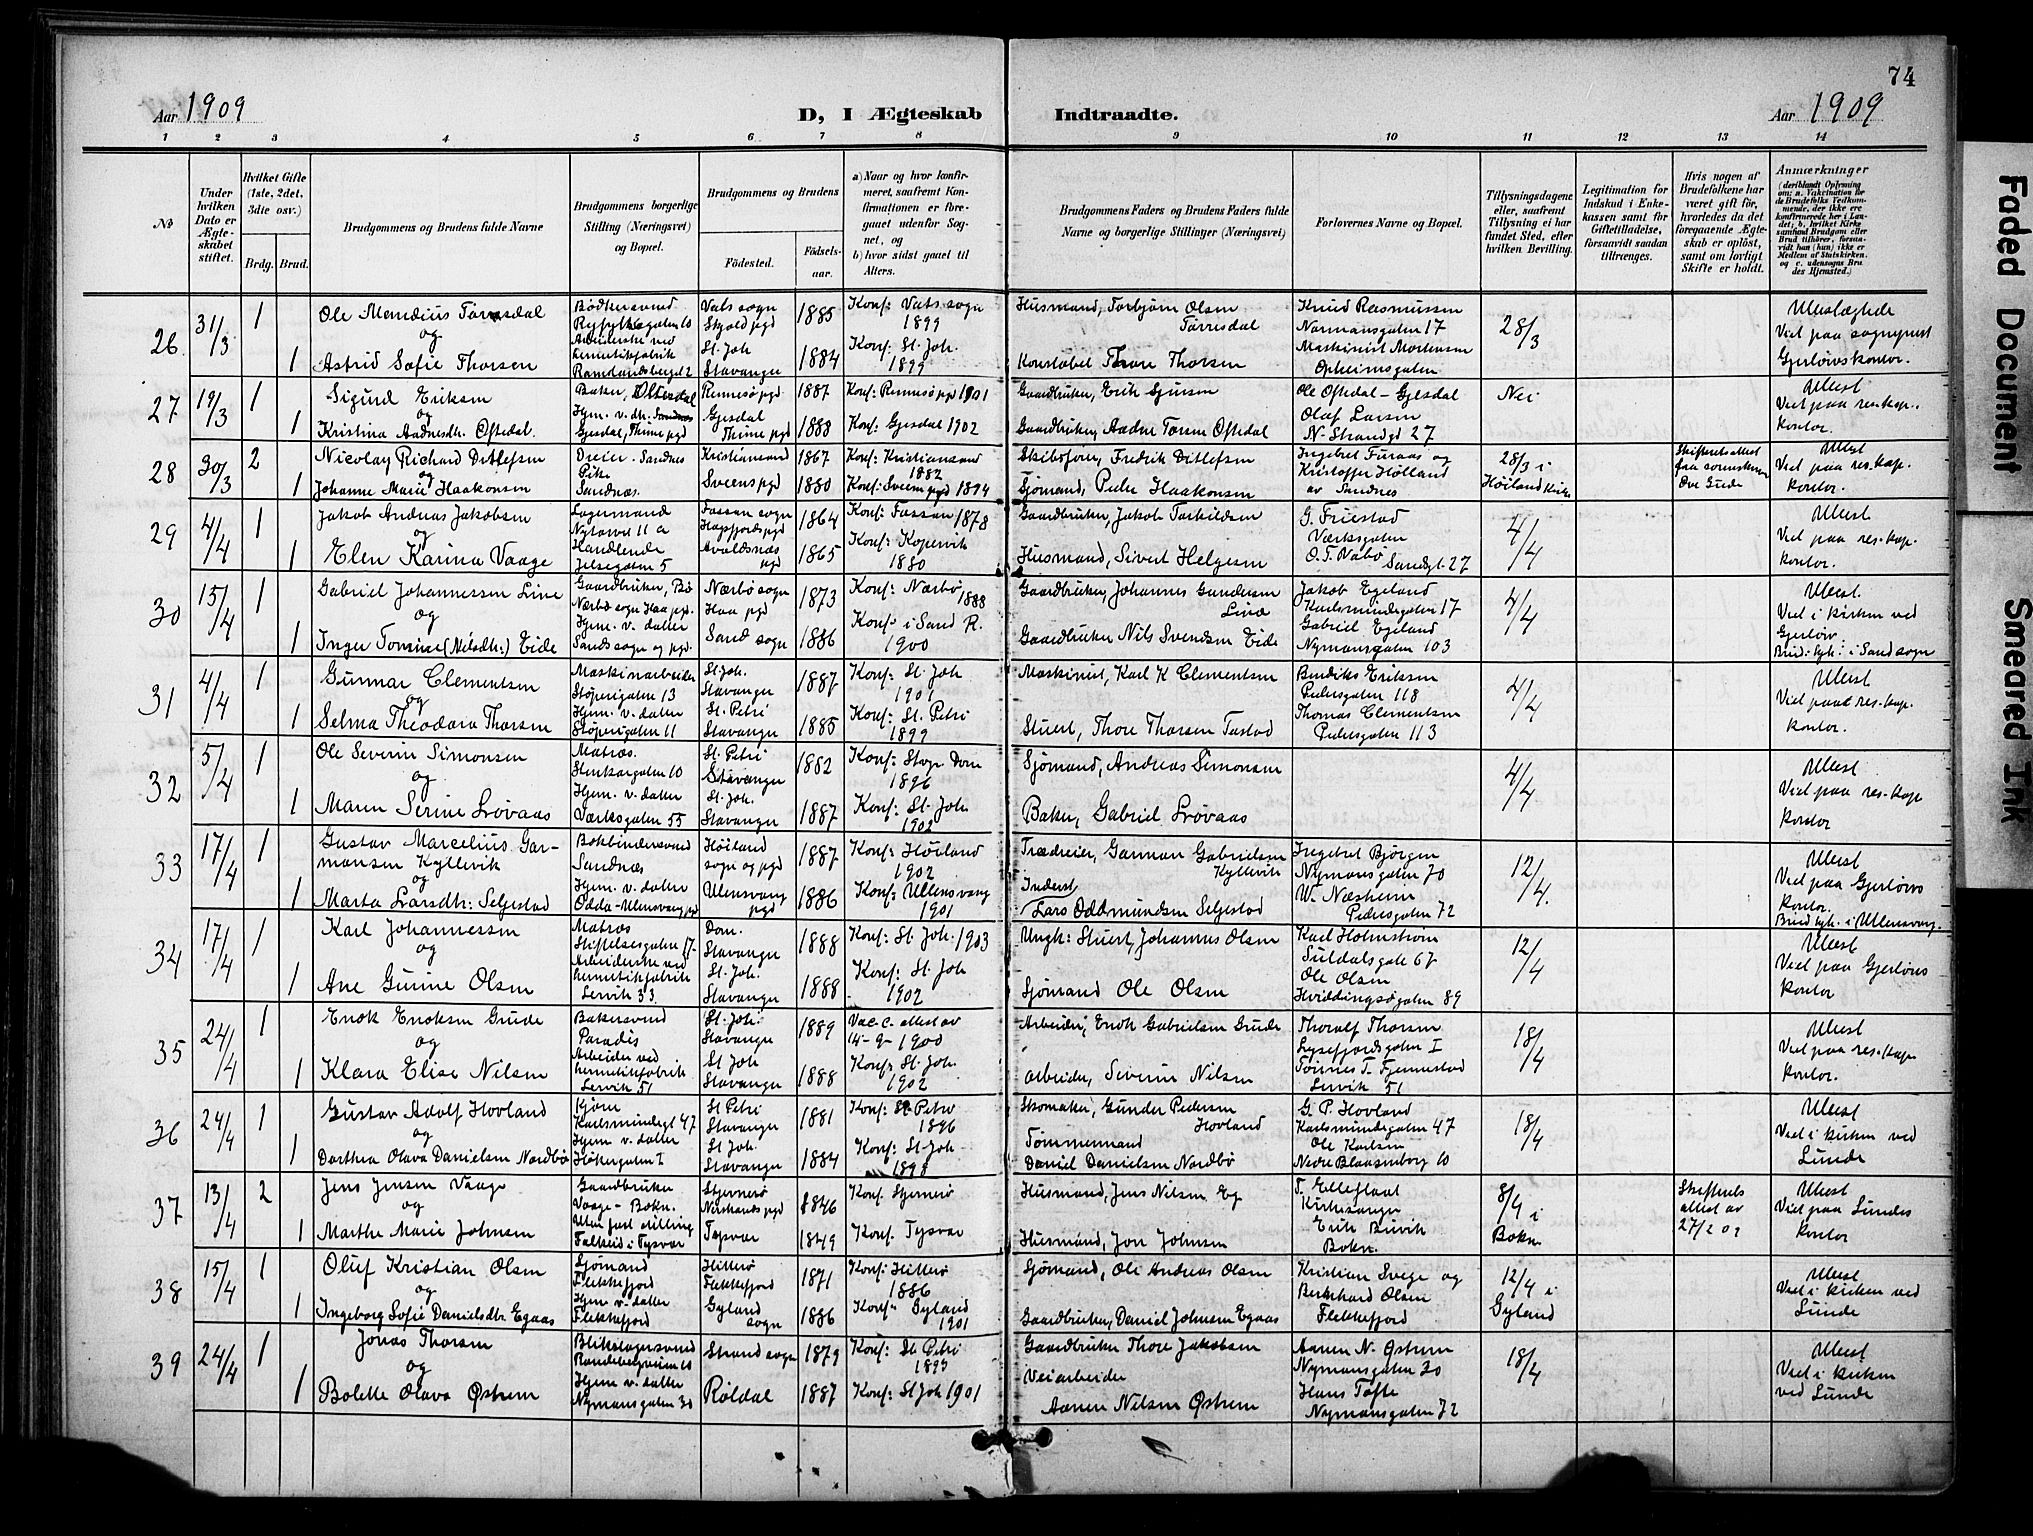 74
Aar 1909
D, I Ægteskab Indtraadte.
Aar 1909
1 2 3 4 5 6 7 8 9 10 11 12 13 14
No
Under hvilken Dato er Ægteskabet stiftet.
Hvilket Gifte (1ste, 2det, 3die osv.)
Brdg. Brud.
Brudgommens og Brudens fulde Navne
Brudgommens borgerlige Stilling (Næringsvei) og Bopæl.
Brudgommens og Brudens
Fødested.
Fødselsaar.
a) Naar og hvor konfirmeret, saafremt Konfirmationen er foregaaet udenfor Sognet, og
b) hvor sidst gaaet til Alters.
Brudgommens Faders og Brudens Faders fulde Navne og borgerlige Stillinger (Næringsvei)
Forlovernes Navne og Bopæl.
Tillysningsdagene eller, saafremt Tillysning ei har fundet Sted, efter hvilken Bevilling.
Legitimation for Indskud i Enkekassen samt for Giftetilladelse, forsaavidt saadan tiltrænges.
Hvis nogen af Brudefolkene har været gift før, hvorledes da det foregaaende Ægteskab er opløst, samt om lovligt Skifte er holdt.
Anmærkninger
(deriblandt Oplysning om: a. Vaccination for de Brudefolks Vedkommende, der ikke ere konfirmerede her i Landet; b. hvilket Kirkesamfund Brudgom eller Brud tilhører, forsaavidt han (hun) ikke er Medlem af Statskirken. og c. udensogns Brudes Hjemsted.)
26 31/3 1 Ole Mendius Tørresdal Bødkersvend Vats sogn 1885 Konf: Vats sogn 1899 Husmand, Torbjørn Olsen Tørresdal Knud Rasmussen Normansgaten 17 28/3
Ryfylkegaten 10 Skjold pgd
og
1 Astrid Sofie Thorsen Arbeiderske ved hermetikfabrik St. Joh Stavanger 1884 Konf: St. Joh. 1899 Konstabel Thore Thorsen Maskinist Mortensen Opheimsgaten
Viet paa sogneprest Gjerløvs kontor.
27 19/3 1 Sigurd Eriksen Baker, Rennesø pgd 1887 Konf: Rennesø pgd 1901 Gaardbruker, Erik Ole Oftedal - Gjesdal Nei Attest
og
1 Kristina Aadnesdtr. Oftedal. Hjem. v. dtr. Gjesdal, Thime pgd Gjesdal Thime pgd 1888 Konf: Gjesdal 1902 Gaardbruker, Aadne Oftedal Olaf Larsen N. Strandgt 27 Viet paa res. kap. kontor.
28 30/3 2 Nicolay Richard Ditlefsen Dreier. Sandnes Kristiansand 1867 Konf: Kristiansand 1882 Skibsfører, Fredrik Ditlefsen Ingebret Furaas og 28/3 i Høiland Kirke Attest
og
1 Johanne Marie Haakonsen Pike Sandnæs. Sveens pgd 1880 Konf: Sveens pgd 1894 Sjømand, Peder Haakonsen Kristoffer Høiland av Sandnes Viet paa res. kap. kontor.
29 4/4 1 Jakob Andreas Jakobsen Lagermand Nylarvei 11 a Fossan sogn Høgsfjords pgd 1864 Konf: Fossan 1878 Gaardbruker, Jakob Torkildsen G. Friestad Værksgaten 4/4 Attest
og
1 Elen Karina Vaage Handlende Jelsegaten 5 Avaldsnæs pgd 1865 Konf: Kopervik 1880 Husmand, Sivert Helgesen O. T. Vabø Sandgt. 27 Viet paa res. kap. kontor.
30 15/4 1 Gabriel Johannessen Line Gaardbruker, Bø Nærbø sogn Haa pgd. Nærbø sogn Haa pgd 1873 Konf: Nærbø 1888 Gaardbruker, Johannes Gundersen Line Jakob Egeland Karlsmindegaten 17 4/4 Attest.
og
1 Inger Tomine (Nilsdtr:) Eide Hjem. v. datter Sands sogn og pgd. Sand sogn 1886 Konf: i Sand R. 1900 Gaardbruker Nils Svendsen Eide Gabriel Egeland Nymansgaten 103 Viet i kirken ved Gjerløv. Brud: lyst i Sand sogn
31 4/4 1 Gunnar Clementsen Maskinarbeider Støperigaten 13 St Joh. Stavanger 1887 Konf: St. Joh 1901 Maskinist, Karl K Clementsen Bendiks Eriksen Pedersgaten 118 4/4 Attest
og
1 Selma Theodora Thorsen Hjem. v. datter Støperigaten 11 St. Petri Stavanger 1885 Konf: St. Petri 1899 Stuert, Thore Thorsen Tastad Thomas Clementsen Pedersgaten 113 Viet paa res. kap. kontor.
32 5/4 1 Ole Severin Simonsen Matros. Stenkargaten 10 St. Petri Stavanger 1882 Konf: Stvgr Dom 1896 Sjømand, Andreas Simonsen 4/4 Attest
og
1 Maren Serine Løvaas Hjem. v. datter Værksgaten 55 St. Joh. Stavanger 1887 Konf: St. Joh 1902 Baker, Gabriel Løvaas Viet paa res. kap kontor
33 17/4 1 Gustav Marcelius Garmansen Kyllevik Bokbindersvend Sandnæs Høiland sogn og pgd 1887 Konf: Høiland 1902 Trædreier, Garman Gabrielsen Kyllevik Ingebret Bjørgen Nymansgaten 70 12/4. Attest
og
1 Marta Larsdtr: Seljestad Hjem. v. datter Odda - Ullensvang pgd Ullensvang pgd 1886 Konf: Ullensvang 1901 Inderst Lars Oddmundsen Seljestad W. Næsheim Pedersgaten 72 Viet paa Gjerløvs kontor. Brud lyst. i Ullensvang.
34 17/4 1 Karl Johannessen Matros Stiftelsesgaten 17. Dom. Stavanger 1888 Konf: St. Joh. 1903 Ungk: Stuert, Johannes Olsen Karl Holmstrøm Suldalsgate 67 12/4 Attest
og
1 Ane Gurine Olsen Arbeiderske ved hermetikfabrik Lervik 33. St. Joh. Stavanger 1888 Konf: St. Joh 1902 Sjømand Ole Olsen Ole Olsen Hviddingsøgaten 89 Viet paa Gjerløvs kontor
35 24/4 1 Enok Enoksen Grude Bakersvend Paradis St. Joh: Stavanger 1889 Vac. c. attest av 14-9-1900 Arbeider, Enok Gabrielsen Grude Thoralf Thorsen Lysefjordsgaten I 18/4 Attest
og
1 Klara Elise Nilsen Arbeider ved hermetikfabrik Lervik 51 St Joh Stavanger 1888 Konf: St. Joh. 1902 Arbeider, Severin Nilsen Tønnes T. Fjermestad Lervik 51 Viet paa res. kap kontor.
36 24/4 1 Gustav Adolf Hovland Kjører Karlsmindegt 47 St Petri Stavanger 1881 Konf: St. Petri 1896 Skomaker, Gunder Pedersen Hovland G. P. Hovland Karlsmindegaten 47 18/4 Attest
og
1 Dorthea Olava Danielsen Nordbø Hjem v. datter Høkergaten I St Joh. Stavanger 1884 Konf: St Joh 1898 Tømmermand Daniel Danielsen Nordbø Ole Karlsen Nedre Blaasenborg 10 Viet i kirken ved Lunde
37 13/4 2 Jens Jensen Vaage Gaardbruker Vaage - Bokn. Stjernerø Nerstrands pgd 1846 Konf. Sjernerø Husmand, Jens Nilsen Eg T. Elleflaat Kirkesanger 8/4 i Bokn Skifterets attest av 27/2 09 Attest
og
1 Marthe Marie Johnsen Uten fast stilling Falkeid i Tysvær Tysvær 1849 Konf. Tysvær Husmand, Jon Johnsen Erik Buvik Bokn. Viet paa Lundes kontor
38 15/4 1 Oluf Kristian Olsen Sjømand Flekkefjord Hitterø Flekkefjord 1871 Konf: Hitterø 1886 Sjømand, Ole Andreas Olsen Kristian Svege og 12/4 i Gyland Attest
og
1 Ingeborg Sofie Danielsdtr Egaas Hjem v. datter Flekkefjord Gyland sogn 1886 Konf: Gyland 1901 Gaardbruker, Daniel Johnsen Egaas Bernhard Olsen Flekkefjord Viet i kirken ved Lunde
39 24/4 1 Jonas Thorsen Blikslagersvend Strand sogn 1879 Konf: St Petri 1893 Gaardbruker Thore Jakobsen Aanen N. Østrem Nymansgaten 30 18/4 Attest
og
1 Bolette Olava Østrem Hjem v. datter Nymansgaten 30 Røldal 1887 Konf: St Joh 1901 Veiarbeider Aanen Nilsen Østrem Hans Tofte Nymansgaten 72 Viet i kirken ved Lunde
Faded Document
Smeared Ink